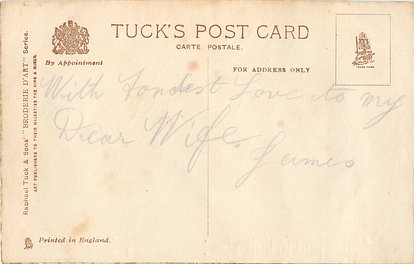 TUCK'S POST CARD
CARTE POSTALE.
By Appointment
FOR ADDRESS ONLY
TRADE MARK
Raphael Tuck & Sons' "BRODERIE D'ART" Series.
ART PUBLISHERS TO THEIR MAJESTIES THE KING & QUEEN.
With Fondest Love to my
Dear Wife
James
Printed in England.